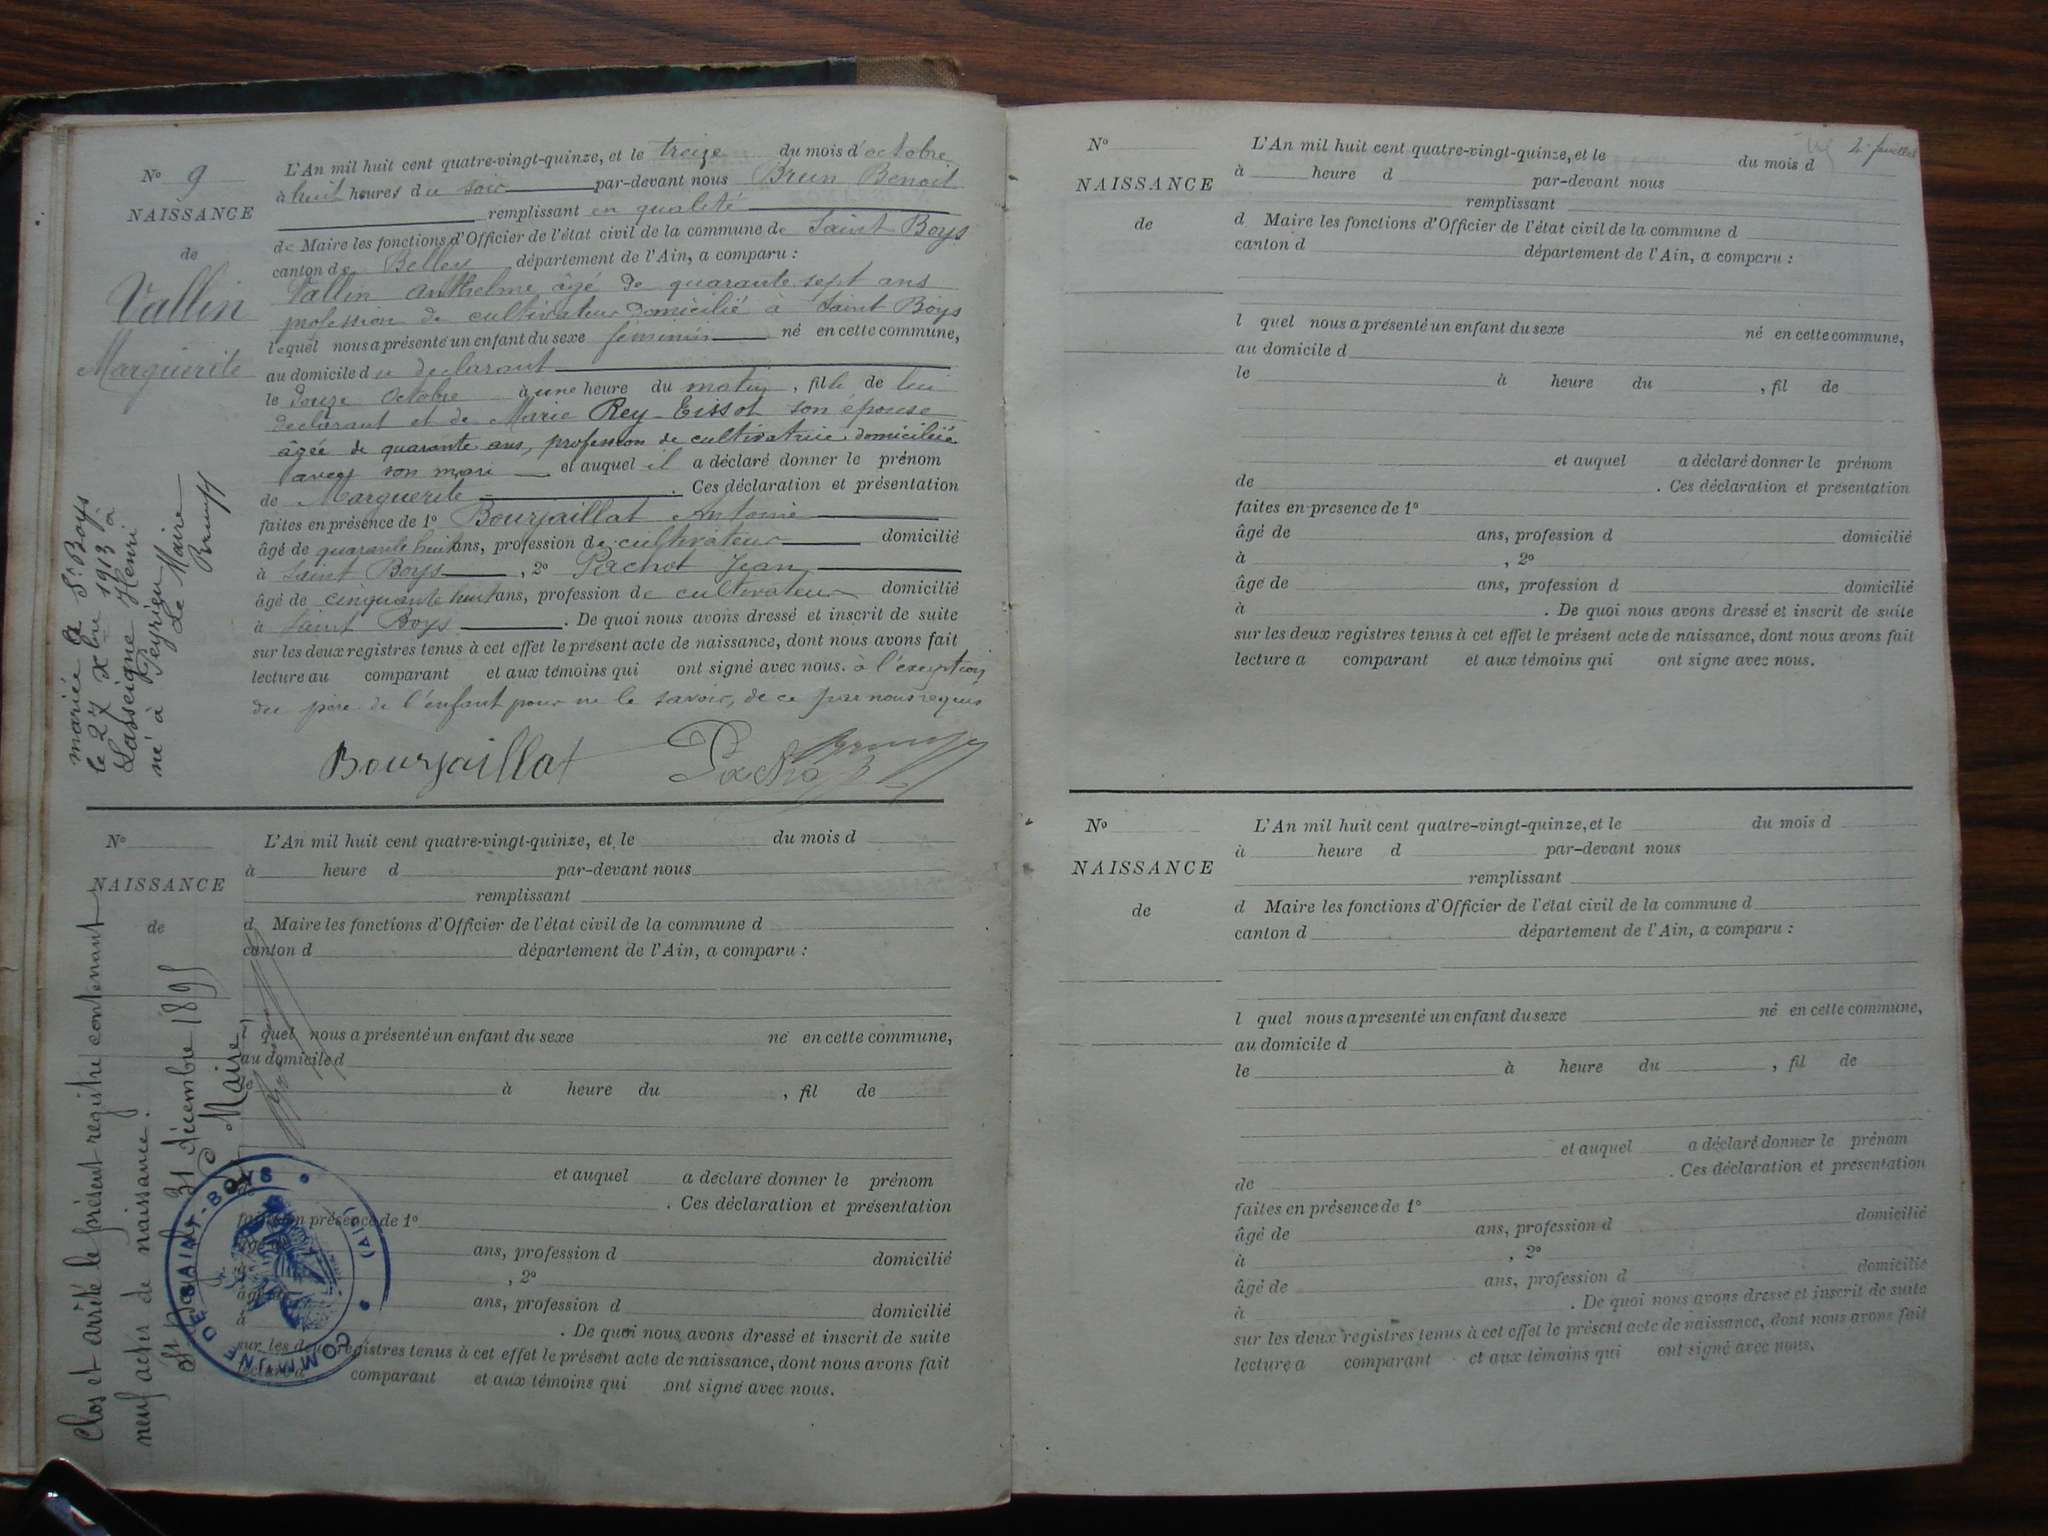 N° 9
NAISSANCE
de
Vallin
Marguerite
L'An mil huit cent quatre-vingt-quinze, et le treize du mois d'octobre
à huit heures du soir par-devant nous Brun Benoit
remplissant en qualité
de Maire les fonctions d'Officier de l'état civil de la commune de Saint Boys
canton de Belley département de l'Ain, a comparu :
Vallin Anthelme âgé de quarante sept ans
profession de cultivateur domicilié à Saint Boys
lequel nous a présenté un enfant du sexe féminin né en cette commune,
au domicile du declarant
le douze octobre à une heure du matin, fille de lui
declarant et de Marie Rey-Tissot son épouse
âgée de quarante ans, profession de cultivatrice domiciliée
avec son mari et auquel il a déclaré donner le prénom
de Marguerite. Ces déclaration et présentation
faites en présence de 1° Bourjaillat Antoine
âgé de quarante huit ans, profession de cultivateur domicilié
à Saint Boys, 2° Pachot Jean
âgé de cinquante huit ans, profession de cultivateur domicilié
à Saint Boys. De quoi nous avons dressé et inscrit de suite
sur les deux registres tenus à cet effet le présent acte de naissance, dont nous avons fait
lecture au comparant et aux témoins qui ont signé avec nous. à l'exeption
du père de l'enfant pour ne le savoir, de ce par nous requis
Bourjaillat Pachot
mariée à St Boys
le 27 xbre 1913 à
Lasseigne Henri
né à Peyrieu
Le Maire
N°
NAISSANCE
de
L'An mil huit cent quatre-vingt-quinze, et le du mois d
à heure d par-devant nous
remplissant
d Maire les fonctions d'Officier de l'état civil de la commune d
canton d département de l'Ain, a comparu :
l quel nous a présenté un enfant du sexe né en cette commune,
au domicile d
à heure du , fil de
et auquel a déclaré donner le prénom
. Ces déclaration et présentation
faites en présence de 1°
ans, profession d domicilié
, 2°
âgé de ans, profession d domicilié
à . De quoi nous avons dressé et inscrit de suite
sur les deux registres tenus à cet effet le présent acte de naissance, dont nous avons fait
comparant et aux témoins qui ont signé avec nous.
Clos et arrêté le présent registre contenant
neuf actes de naissance.
St Boys 31 décembre 1895
Le Maire
COMMUNE DE SAINT-BOYS (AIN)
2e feuillet
N°
NAISSANCE
de
L'An mil huit cent quatre-vingt-quinze, et le du mois d
à heure d par-devant nous
remplissant
d Maire les fonctions d'Officier de l'état civil de la commune d
canton d département de l'Ain, a comparu :
l quel nous a présenté un enfant du sexe né en cette commune,
au domicile d
le à heure du , fil de
et auquel a déclaré donner le prénom
de . Ces déclaration et présentation
faites en présence de 1°
âgé de ans, profession d domicilié
à , 2°
âgé de ans, profession d domicilié
à . De quoi nous avons dressé et inscrit de suite
sur les deux registres tenus à cet effet le présent acte de naissance, dont nous avons fait
lecture a comparant et aux témoins qui ont signé avec nous.
N°
NAISSANCE
de
L'An mil huit cent quatre-vingt-quinze, et le du mois d
à heure d par-devant nous
remplissant
d Maire les fonctions d'Officier de l'état civil de la commune d
canton d département de l'Ain, a comparu :
l quel nous a présenté un enfant du sexe né en cette commune,
au domicile d
le à heure du , fil de
et auquel a déclaré donner le prénom
de . Ces déclaration et présentation
faites en présence de 1°
âgé de ans, profession d domicilié
à , 2°
âgé de ans, profession d domicilié
à . De quoi nous avons dressé et inscrit de suite
sur les deux registres tenus à cet effet le présent acte de naissance, dont nous avons fait
lecture a comparant et aux témoins qui ont signé avec nous.